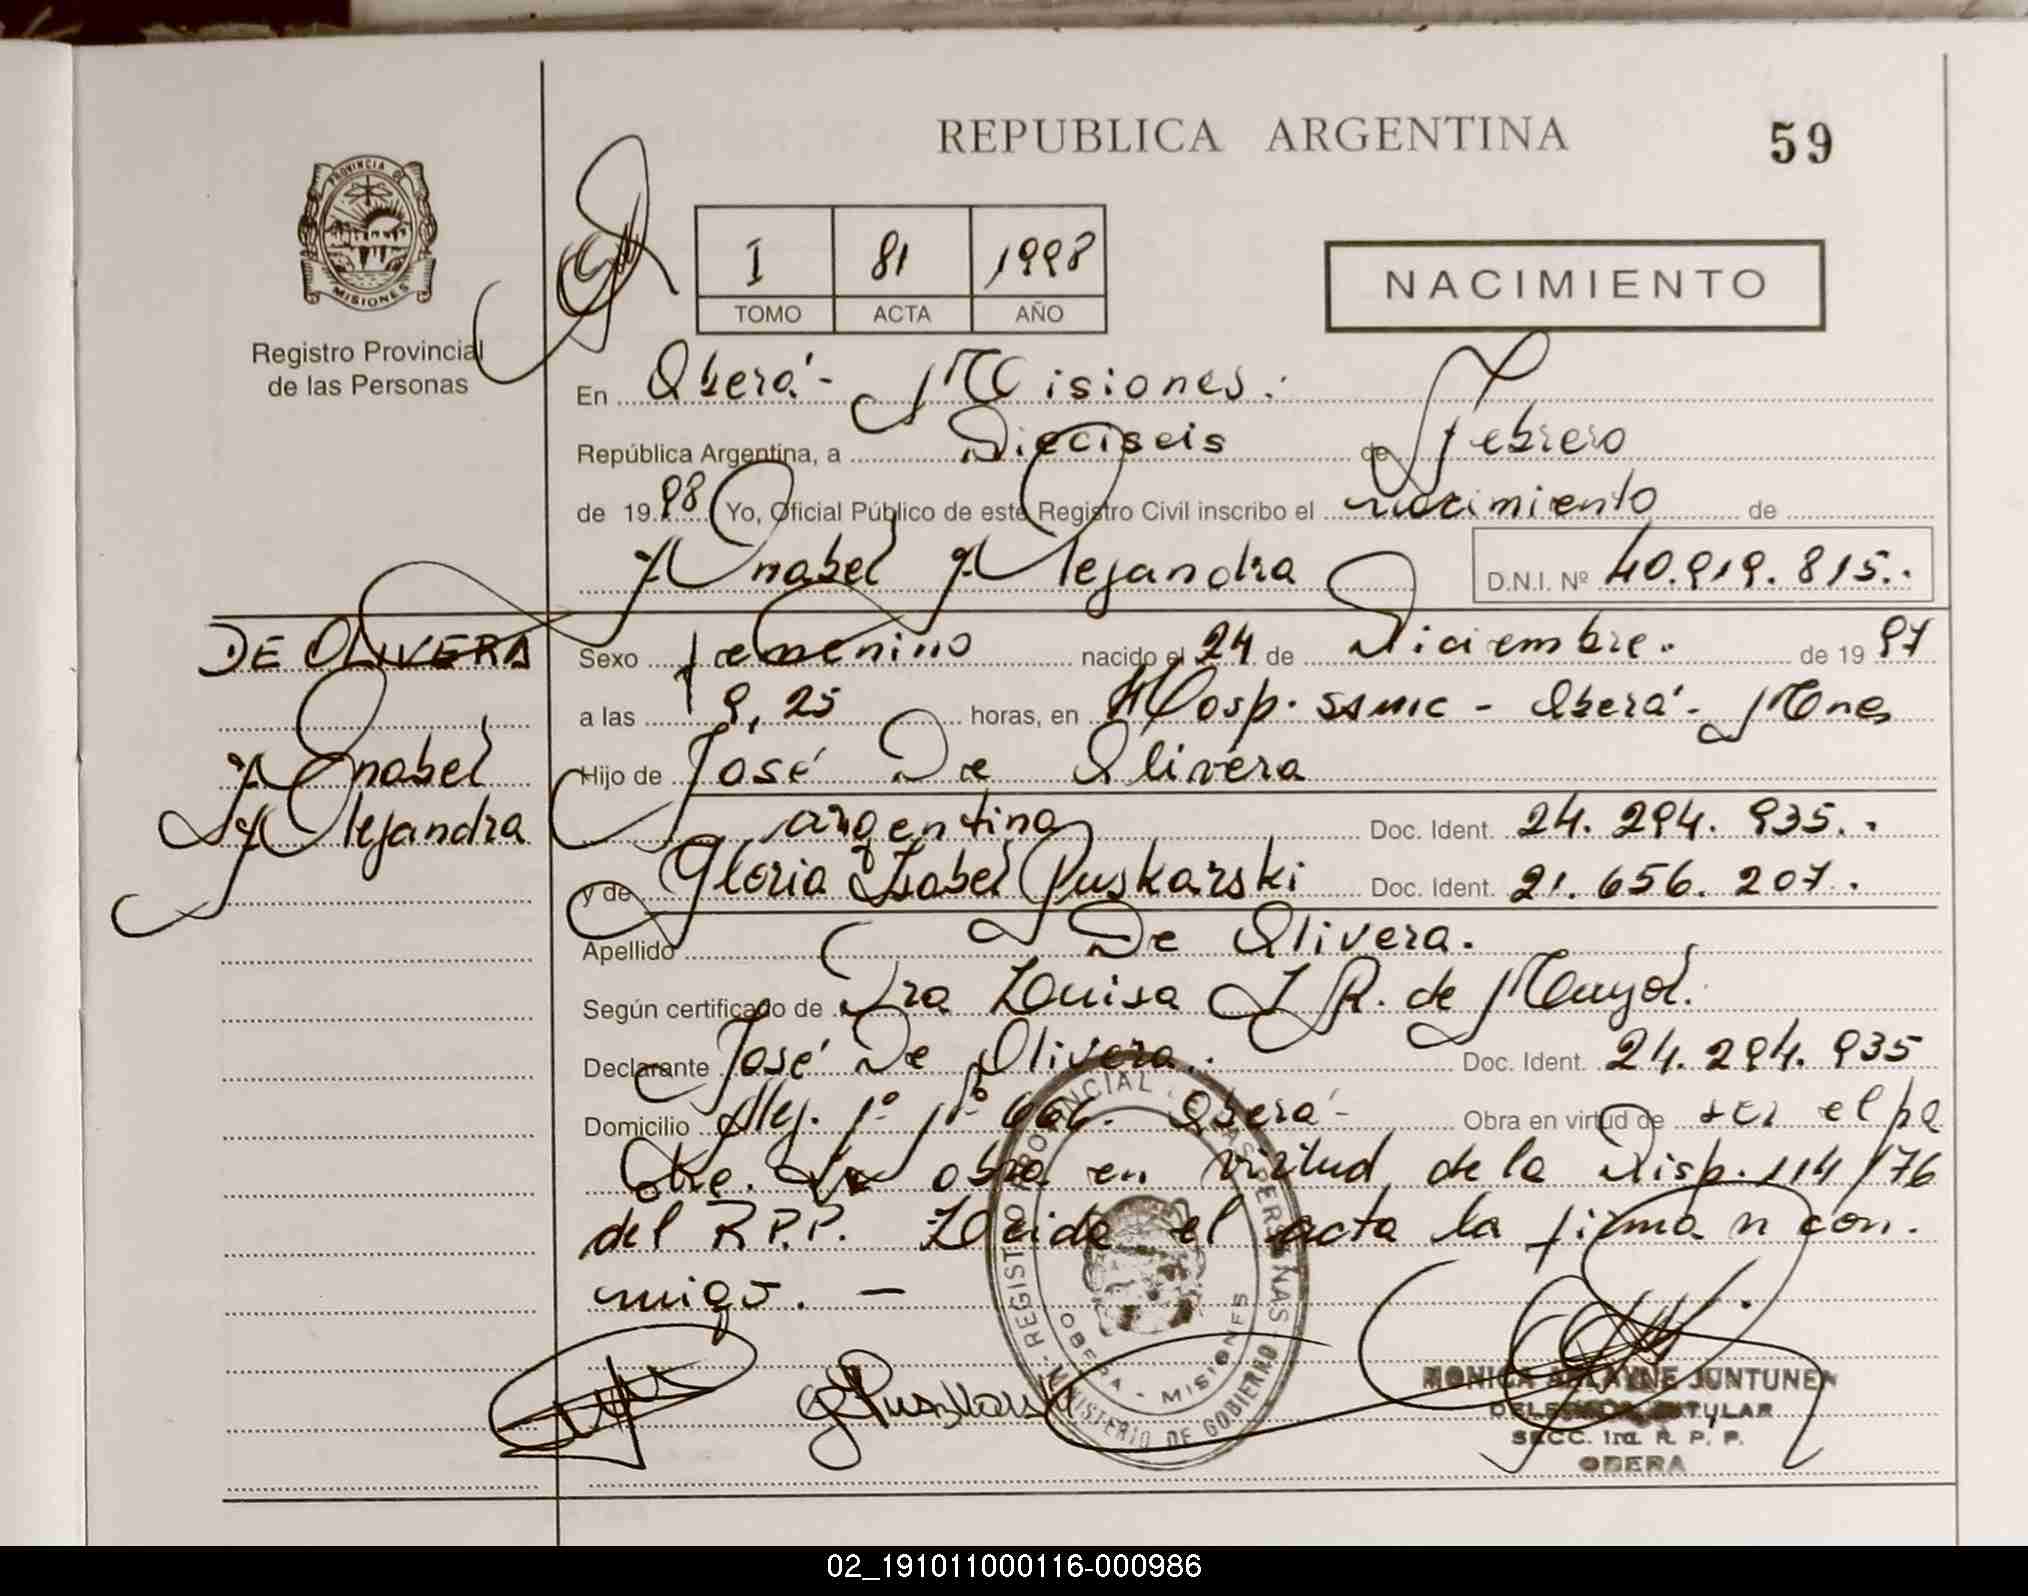 REPUBLICA ARGENTINA
59
PROVINCIA DE
MISIONES
Registro Provincial
de las Personas
I 81 1998
TOMO ACTA AÑO
NACIMIENTO
En Oberá - Misiones.
República Argentina, a Dieciseis de Febrero
de 1998 Yo, Oficial Público de este Registro Civil inscribo el nacimiento de
Anabel Alejandra D.N.I. Nº 40.919.815.
DE OLIVERA
Anabel
Alejandra
Sexo femenino nacido el 24 de Diciembre. de 1997
a las 9,25 horas, en Hosp. SAMIC - Oberá - Mnes
Hijo de José De Olivera
argentina Doc. Ident. 24.294.935.
y de Gloria Isabel Puskarski Doc. Ident. 21.656.207.
Apellido De Olivera.
Según certificado de Dra Luisa J R. de Mayol.
Declarante José De Olivera. Doc. Ident. 24.294.935
Domicilio 1º Nº 666. Oberá - Obra en virtud de ser el pa
dre. obra en virtud de la Disp. 114/76
del R.P.P. Leida el acta la firma n con.
migo. -
REGISTRO PROVINCIAL DE LAS PERSONAS
MINISTERIO DE GOBIERNO
OBERA - MISIONES
MONICA JUNTUNEN
TITULAR
SECC. 1ra. R. P. P.
OBERA
02_191011000116-000986